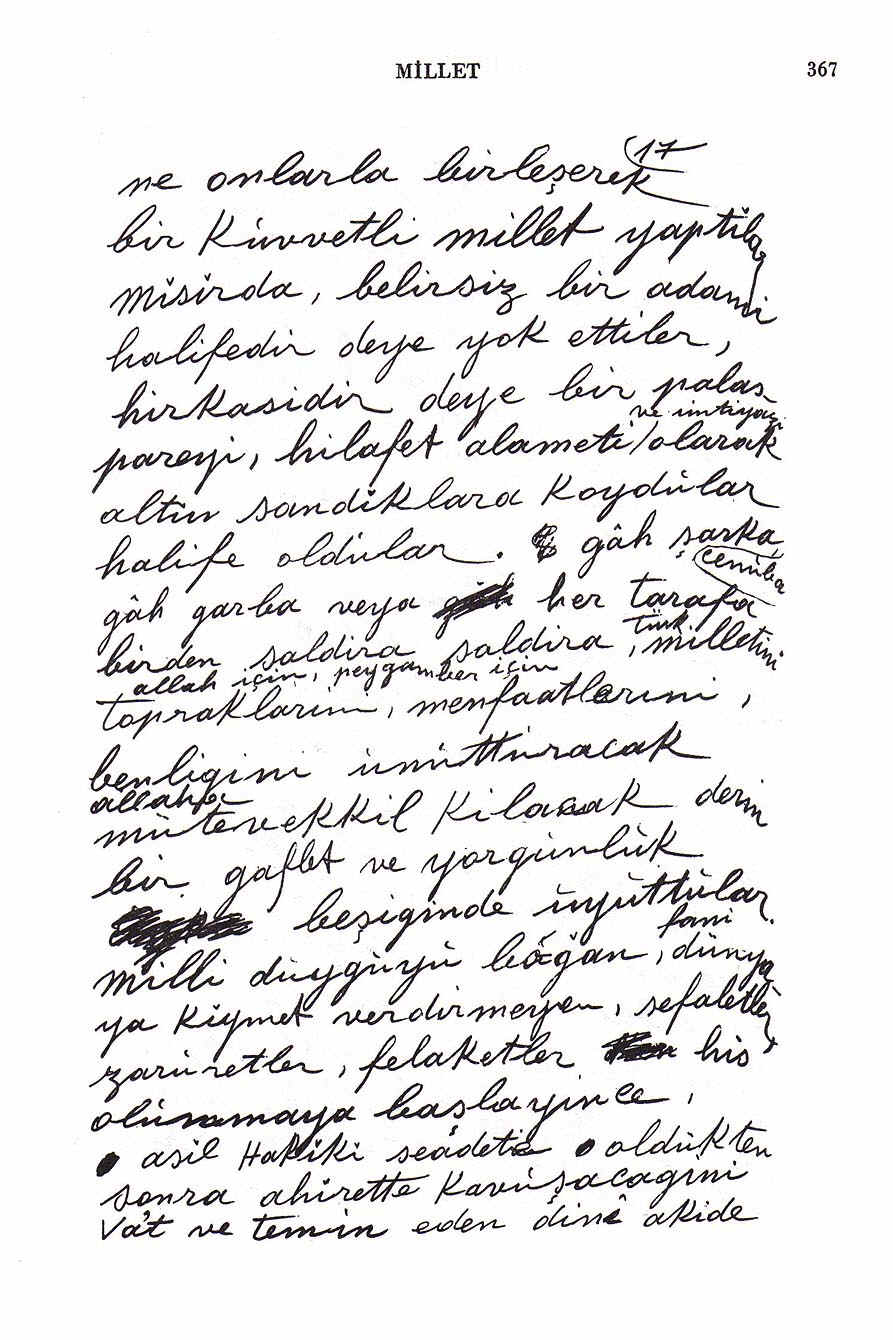 MİLLET 367
17
ne onlarla birleşerek
bir kuvvetli millet yaptılar
Mısırda, belirsiz bir adamı
halifedir deye yok ettiler,
hırkasıdır deye bir palas-
ve imtiyazı
pareyi, hilafet alameti/olarak
altın sandıklara koydular
halife oldular. gâh şarka,
cenuba
gâh garba veya her tarafa
birden saldıra saldıra, türk milletini
allah için, peygamber için
topraklarını, menfaatlerini,
benligini unutturacak
allah'a
mütevekkil kılacak derin
bir gaflet ve yorgunluk
beşiginde uyuttular.
fani
Milli duyguyu boğan, dünya
ya kıymet verdirmeyen, sefaletler,
zaruretler, felaketler his
olunamaya başlayınca,
asıl Hakiki seadete oldukten
sonra ahirette kavuşacagını
Va't ve temin eden dinî akide